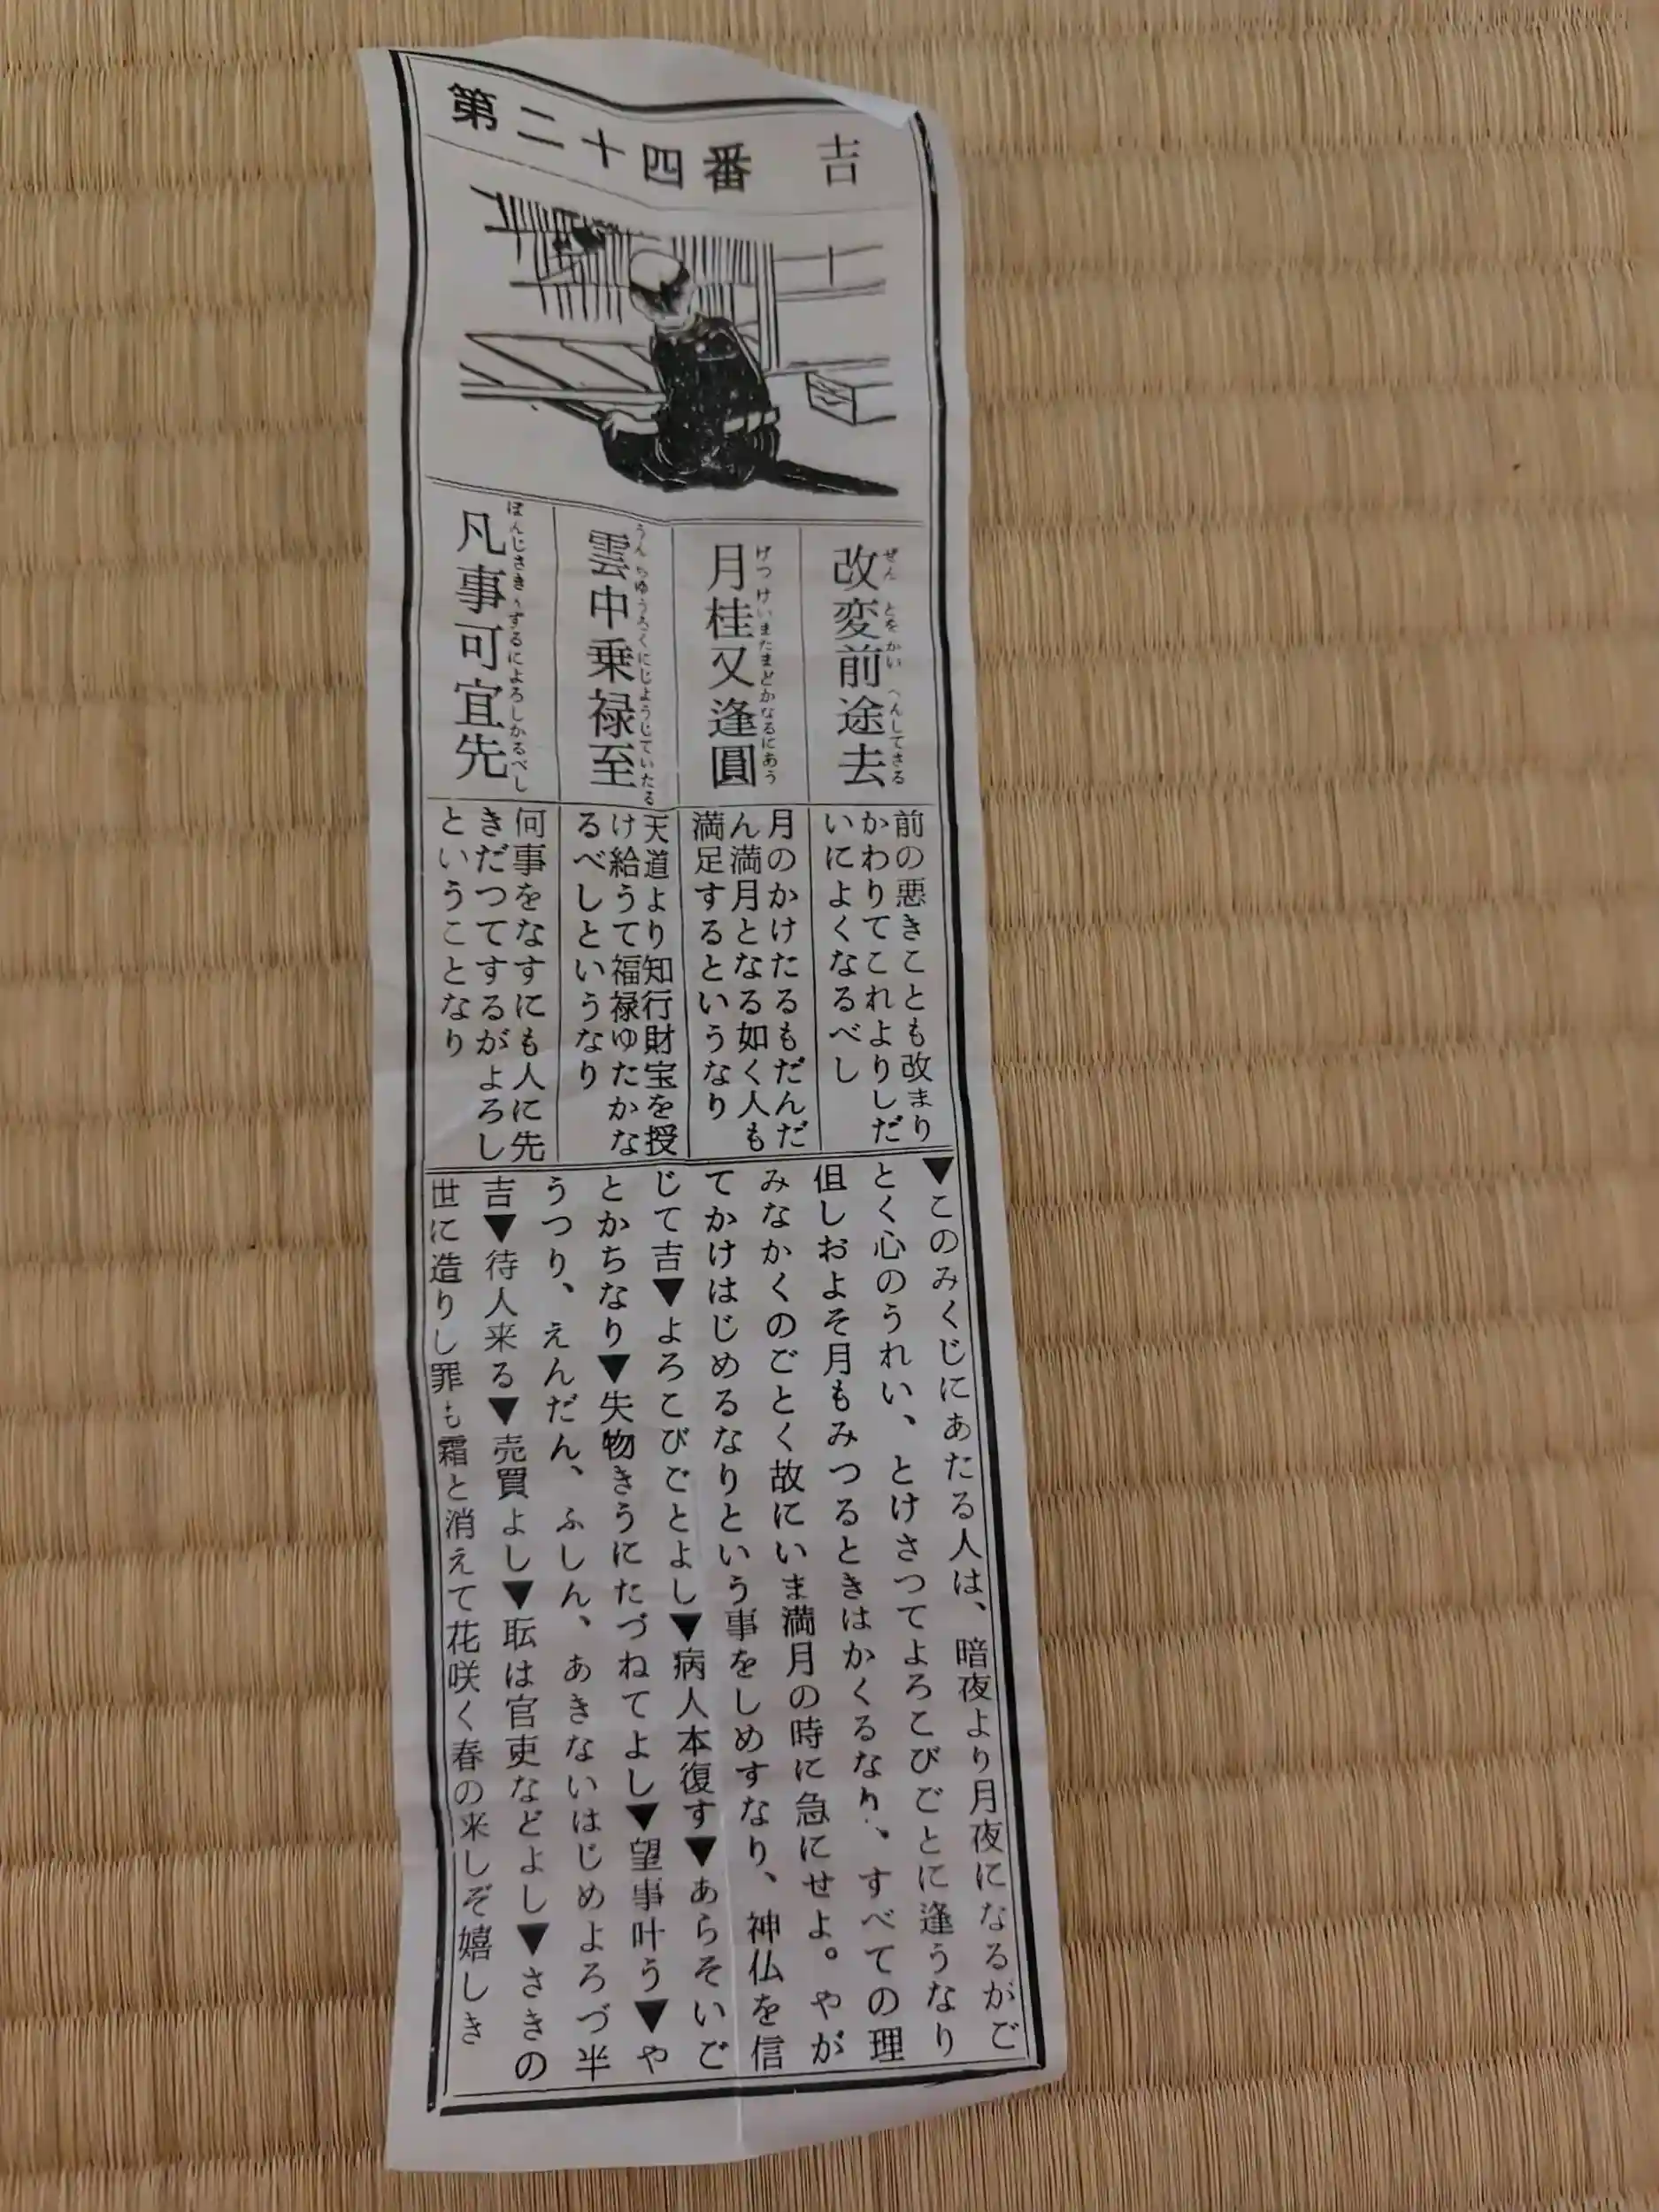 第二十四番　吉
改変前途去
ぜんとをかいへんしてさる
月桂又逢圓
げつけいまたまどかなるにあう
雲中乗禄至
うんちゆうろくにじようじていたる
凡事可宜先
ぼんじさき〳〵するによろしかるべし
前の悪きことも改まり
かわりてこれよりしだ
いによくなるべし
月のかけたるもだんだ
ん満月となる如く人も
満足するというなり
天道より知行財宝を授
け給うて福禄ゆたかな
るべしというなり
何事をなすにも人に先
きだつてするがよろし
ということなり
▼このみくじにあたる人は、暗夜より月夜になるがご
とく心のうれい、とけさつてよろこびごとに逢うなり
但しおよそ月もみつるときはかくるなり、すべての理
みなかくのごとく故にいま満月の時に急にせよ。やが
てかけはじめるなりという事をしめすなり、神仏を信
じて吉▼よろこびごとよし▼病人本復す▼あらそいご
とかちなり▼失物きうにたづねてよし▼望事叶う▼や
うつり、えんだん、ふしん、あきないはじめよろづ半
吉▼待人来る▼売買よし▼耺は官吏などよし▼さきの
世に造りし罪も霜と消えて花咲く春の来しぞ嬉しき